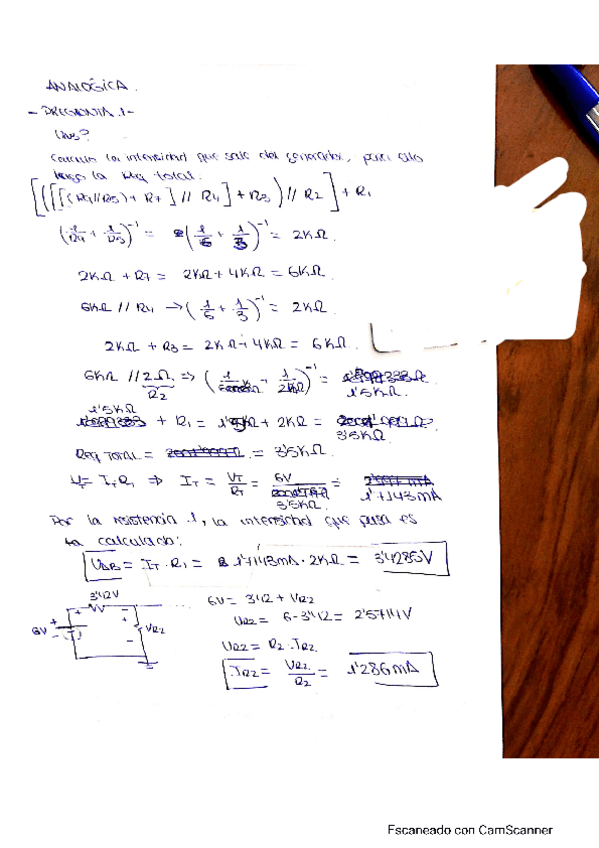 ANALÓGICA.
- PREGUNTA 1 -
UAB?
Calculo la intensidad que sale del generador, para ello
tengo la Req total.
[([[(R4//R5) + R7] // R4] + R3) // R2] + R1
(1/R4 + 1/R5)⁻¹ = (1/6 + 1/3)⁻¹ = 2KΩ.
2KΩ + R7 = 2KΩ + 4KΩ = 6KΩ
6KΩ // R4 → (1/6 + 1/3)⁻¹ = 2KΩ.
2KΩ + R3 = 2KΩ + 4KΩ = 6KΩ.
6KΩ // 2Ω => ( 1/ + 1/2KΩ)⁻¹ = 1'5KΩ.
R2
1'5KΩ + R1 = 1'5K + 2KΩ = 3'5KΩ
Req TOTAL = = 3'5KΩ.
IT = VT/RT = 6V/3'5KΩ = 1'7143mA
Por la resistencia 1, la intensidad que pasa es
la calculada:
UAB = IT · R1 = 1'7143mA · 2KΩ = 3'4285V
3'42V
6V
VR2
6V = 3'42 + VR2
VR2 = 6 - 3'42 = 2'5714V
VR2 = R2 · IR2
IR2 = VR2/R2 = 1'286mA
Escaneado con CamScanner